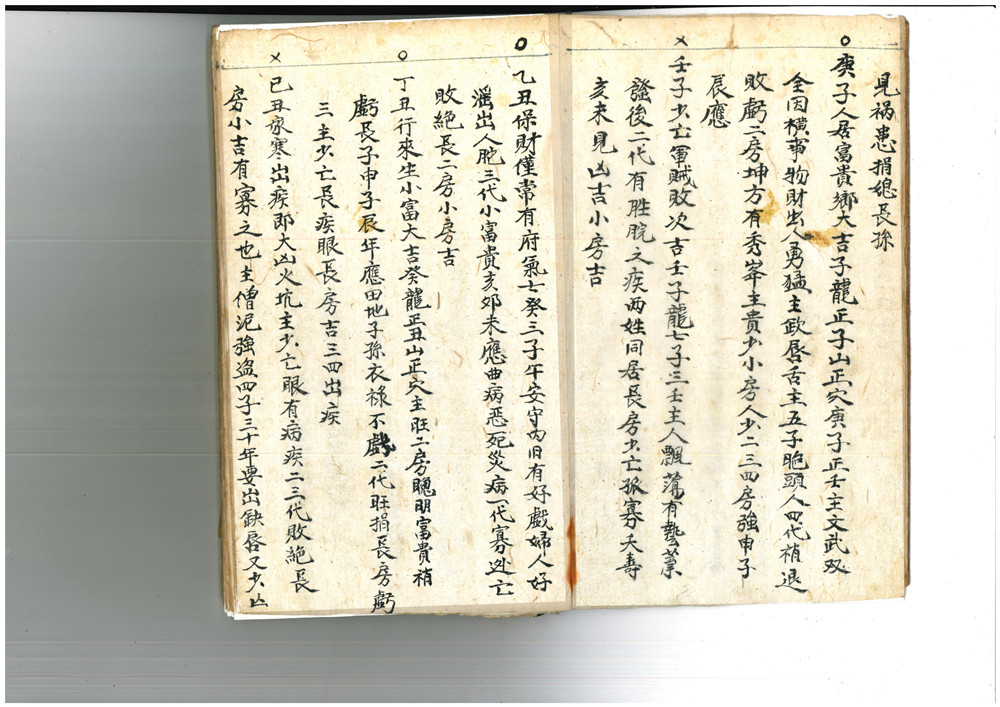 見禍患捐媳長孫
○
庚子人居富貴鄉大吉子龍正子山正穴庚子正壬主文武双
全因橫事物財出人勇猛主欽唇舌主五子㐫頭人四代稍退
敗虧二房坤方有秀峯主貴少小房人少二三四房強申子
辰應
×
壬子少亡軍賊敗次吉壬子龍七子三壬主人飄蕩有藝業
發後二代有胜脘之疾两姓同居長房少亡孤寡夭壽
亥未見凶吉小房吉
○
乙丑保財僅常有府氣七癸三子午安守內旧有好戲婦人好
滛出人肶三代小富貴亥夘未應曲病惡死災病一代寡逃亡
敗絶長二房小房吉
○
丁丑行來生小富大吉癸龍正丑山正穴主旺二房聰明富貴稍
虧長子申子辰年應田地子孫衣祿不虧二代旺捐長房虧
三主少亡長疾眼長房吉三四出疾
×
己丑家寒出疾郎大凶火坑主少亡眼有病疾二三代敗絶長
房小吉有寡之也主僧泥強盗四子三十年要出缺唇又少凶